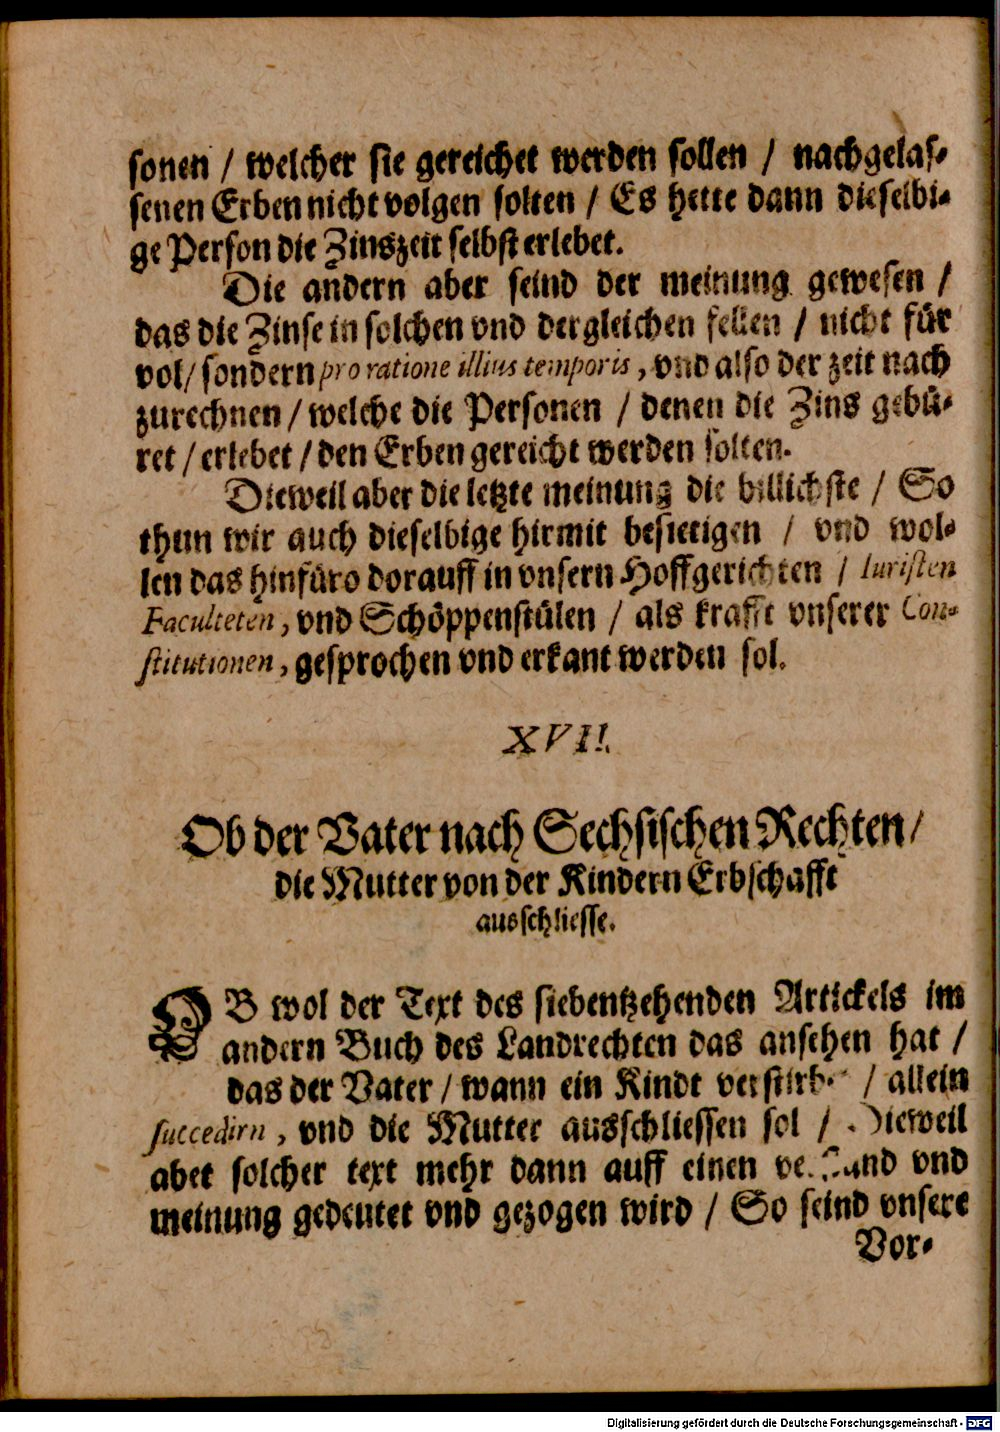 sonen / welcher sie gereichet werden sollen / nachgelas⸗
senen Erben nicht volgen solten / Es hette dann dieselbi⸗
ge Person die Zinszeit selbst erlebet.
Die andern aber seind der meinung gewesen /
das die Zinse in solchen vnd dergleichen fellen / nicht für
vol / sondern pro ratione illius temporis, vnd also der zeit nach
zurechnen / welche die Personen / denen die Zins gebü⸗
ret / erlebet / den Erben gereicht werden solten.
Dieweil aber die letzte meinung die billichste / So
thun wir auch dieselbige hirmit besietigen / vnd wol⸗
len das hinfüro dorauff in vnsern Hoffgerichten / Iuristen
Faculteten, vnd Schöppenstülen / als krafft vnserer Con⸗
stitutionen, gesprochen vnd erkant werden sol.
XVII.
Ob der Vater nach Sechsischen Rechten /
die Mutter von der Kindern Erbschafft
ausschliesse.
OB wol der Text des siebentzehenden Artickels im
andern Buch des Landrechten das ansehen hat /
das der Vater / wann ein Kindt verstirbt / allein
succedirn, vnd die Mutter ausschliessen sol / Dieweil
aber solcher text mehr dann auff einen verstand vnd
meinung gedeutet vnd gezogen wird / So seind vnsere
Vor⸗
Digitalisierung gefördert durch die Deutsche Forschungsgemeinschaft - DFG